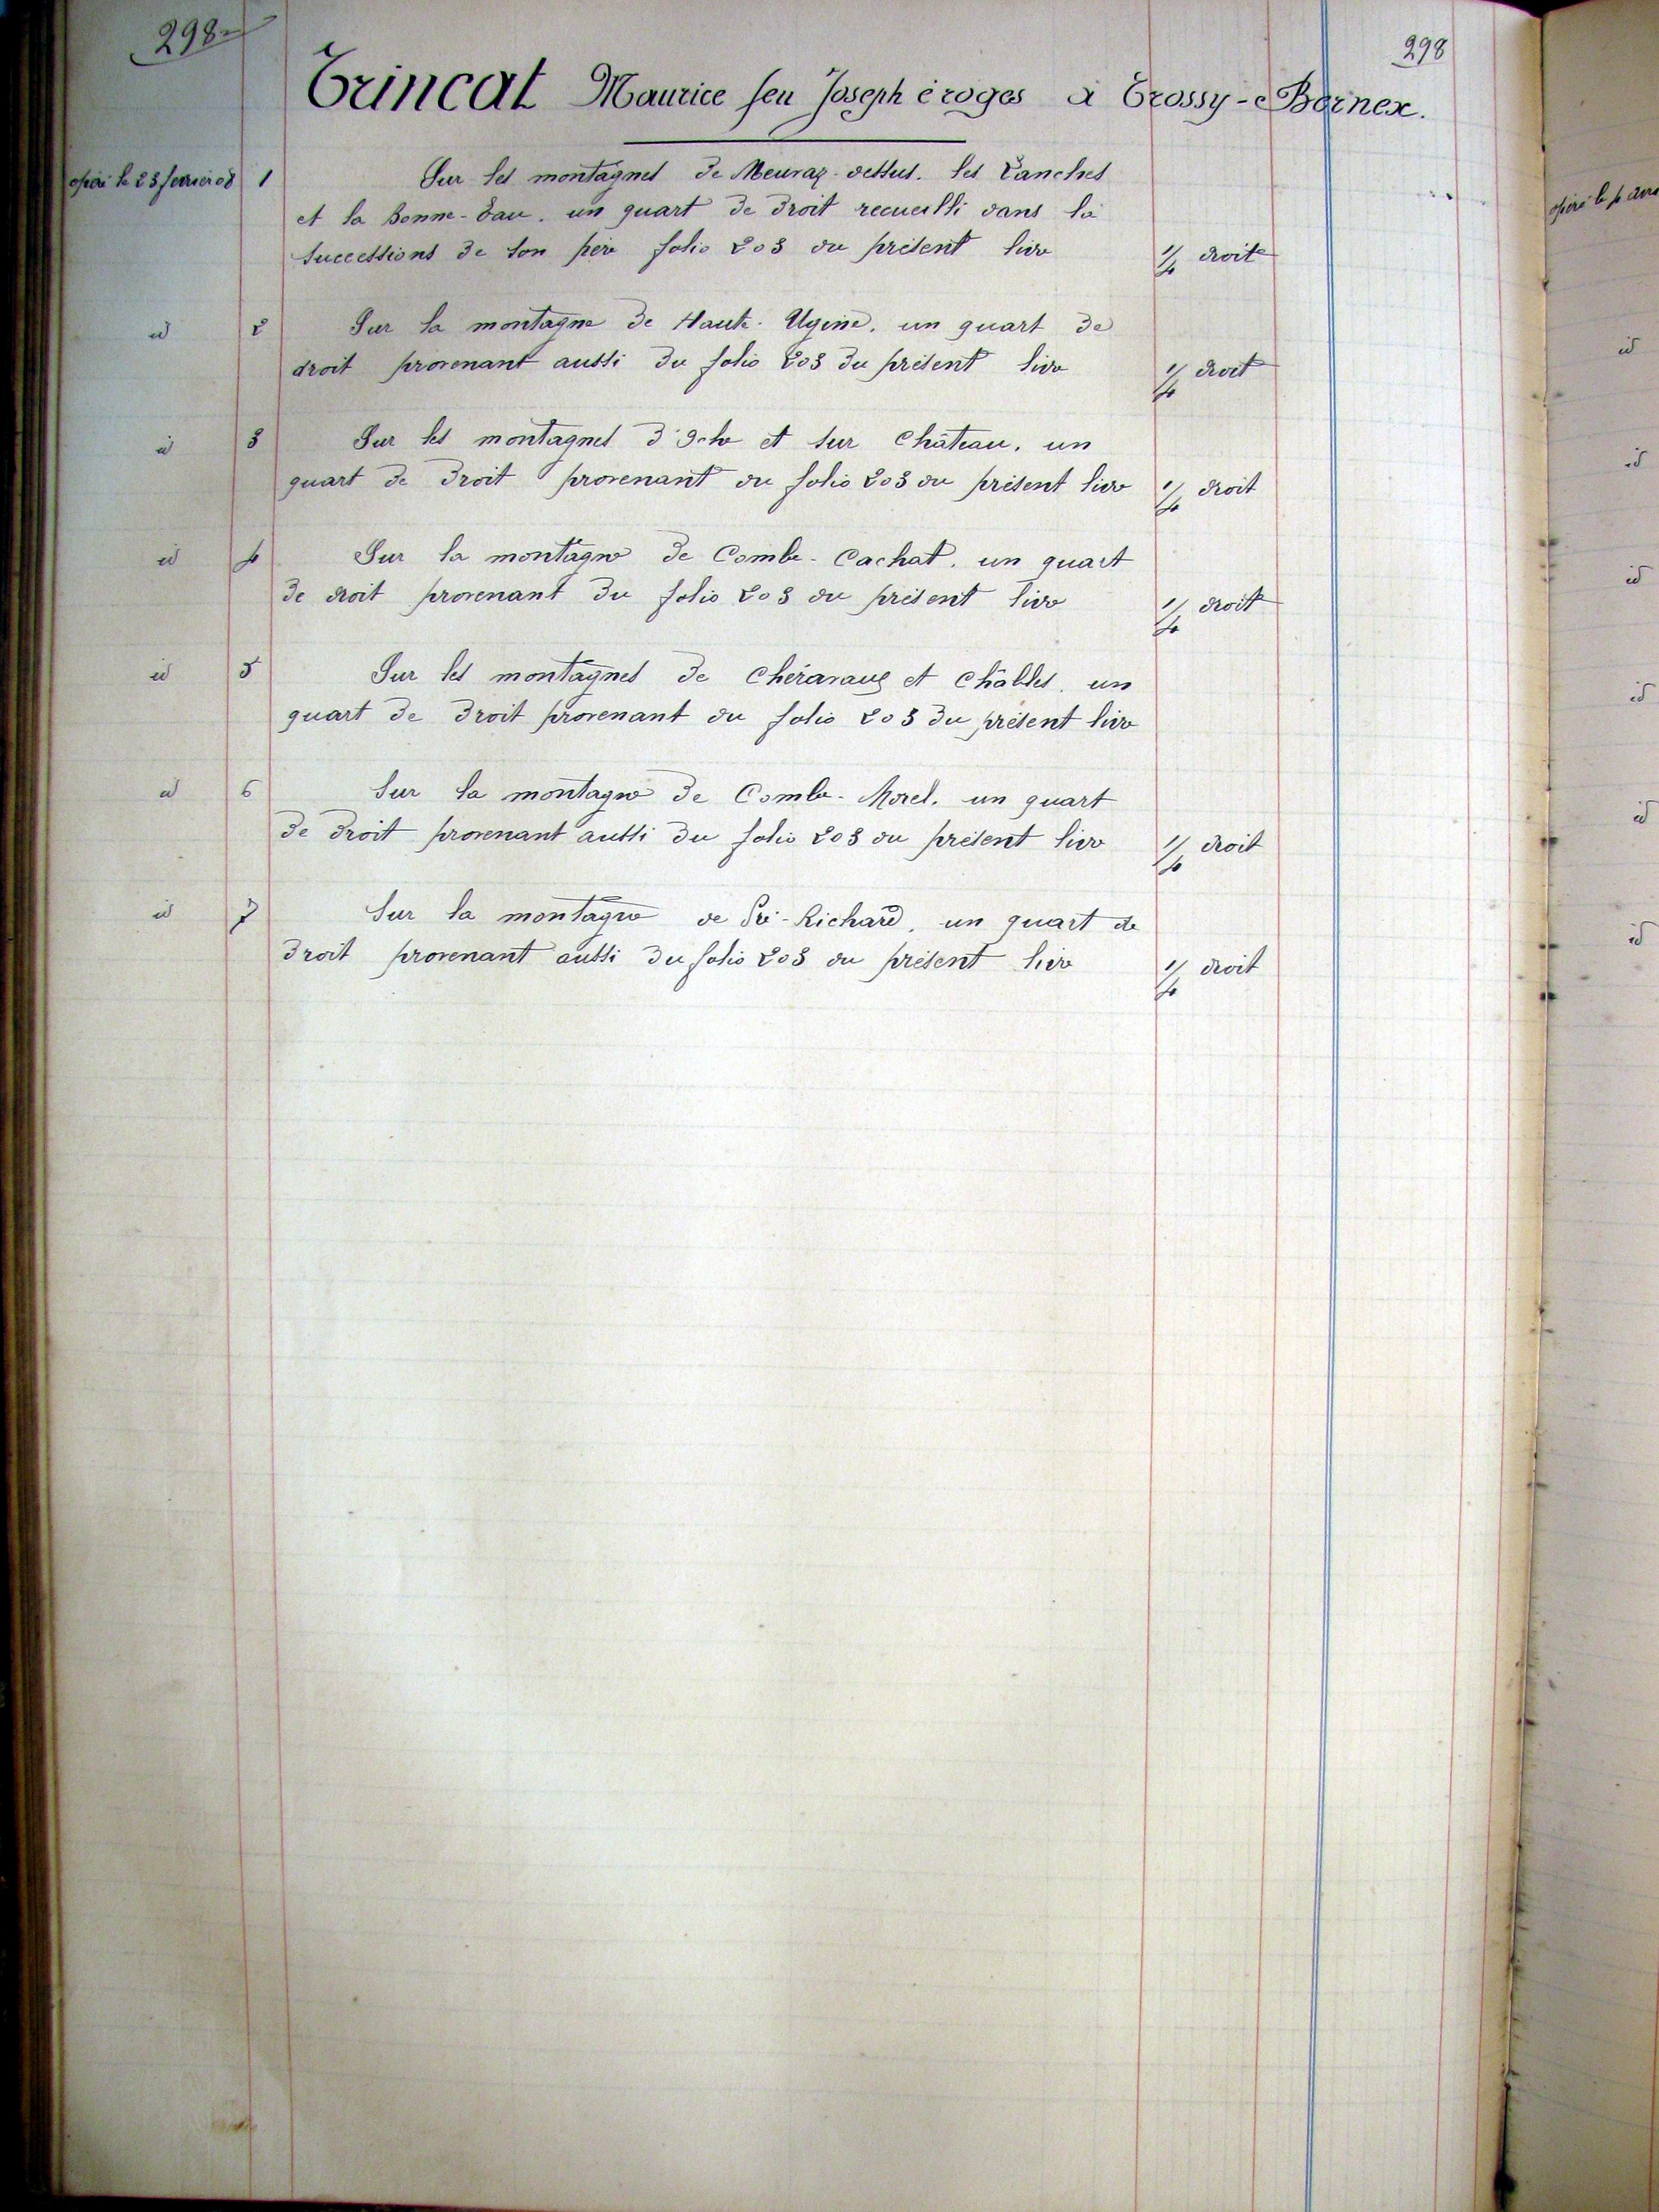 298
298
Trincat Maurice feu Joseph éroges à Trossy-Bernex.
opéré le 23 février 08 1 Sur les montagnes de Meuraz-dessus. les Tanches
et la Bonne-Eau. un quart de droit recueilli dans la
successions de son père folio 203 du présent livre 1/4 droit
id 2 Sur la montagne de Haute-Ugine. un quart de
droit provenant aussi du folio 203 du présent livre 1/4 droit
id 3 Sur les montagnes d'Oche et sur Château. un
quart de droit provenant du folio 203 du présent livre 1/4 droit
id 4 Sur la montagne de Combe-Cachat. un quart
de droit provenant du folio 203 du présent livre 1/4 droit
id 5 Sur les montagnes de Chéravaux et Châbles. un
quart de droit provenant du folio 203 du présent livre
id 6 Sur la montagne de Combe-Morel. un quart
de droit provenant aussi du folio 203 du présent livre 1/4 droit
id 7 Sur la montagne de Pré-Richard, un quart de
droit provenant aussi du folio 203 du présent livre 1/4 droit
opéré le
id
id
id
id
id
id